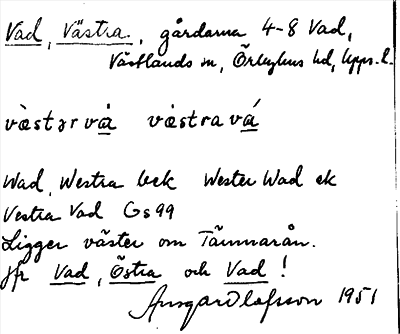 Vad, Västra., gårdarna 4-8 Vad,
Västlands sn, Örbyhus hd, Upps. l.
vȧ̀stərvá vȧ̀stravá
Wad, Westra bek Wester Wad ek
Vestra Vad Gs 99
Ligger väster om Tämnarån.
Jfr Vad, Östra och Vad!
Ansgar Olafsson 1951